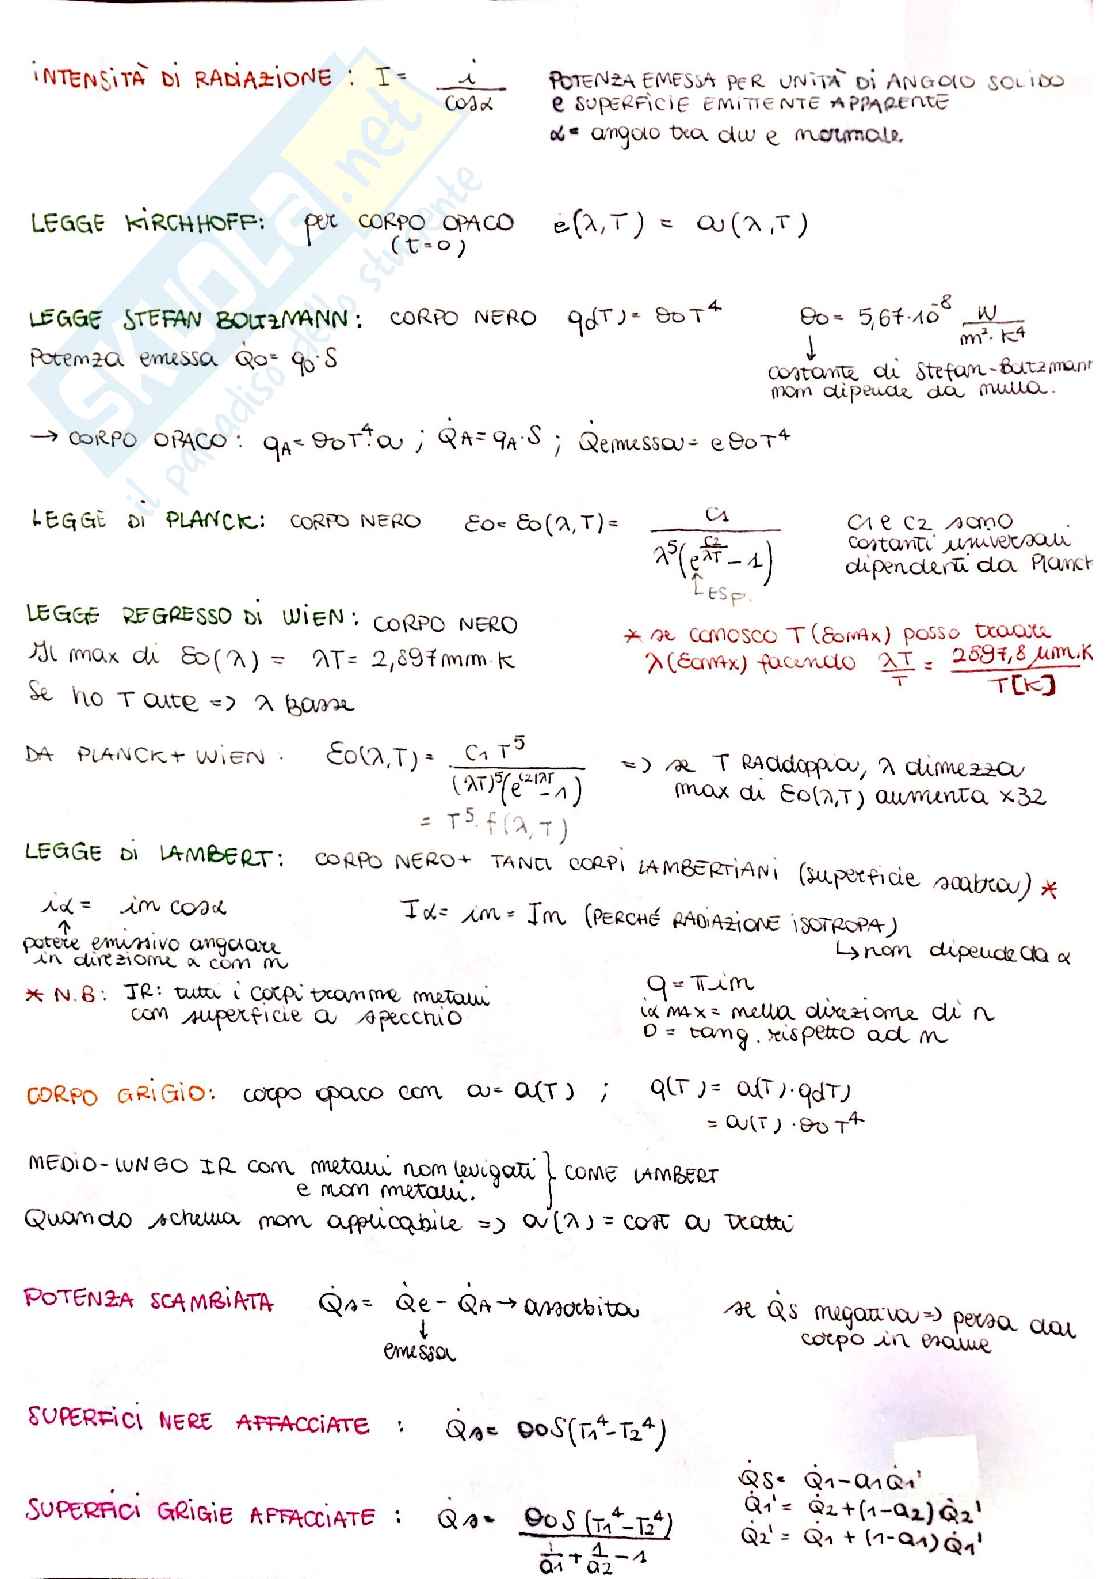 INTENSITÀ DI RADIAZIONE : I = i / cosα
POTENZA EMESSA PER UNITÀ DI ANGOLO SOLIDO
e SUPERFICIE EMITTENTE APPARENTE
α = angolo tra dω e normale.
LEGGE KIRCHHOFF: per CORPO OPACO e(λ,T) = a(λ,T)
(t=0)
LEGGE STEFAN BOLTZMANN: CORPO NERO q0(T) = σ0T⁴ σ0 = 5,67·10⁻⁸ W / m²·K⁴
Potenza emessa Q̇0 = q0·S
costante di Stefan-Boltzmann
non dipende da nulla.
→ CORPO OPACO: qA = σ0T⁴·a ; Q̇A = qA·S ; Q̇emessa = eσ0T⁴
LEGGE DI PLANCK: CORPO NERO ε0 = ε0(λ,T) = C1 / λ⁵(e^(C2/λT) - 1)
C1 e C2 sono
costanti universali
dipendenti da Planck
ESP.
LEGGE REGRESSO DI WIEN: CORPO NERO
Il max di ε0(λ) = λT = 2,897mm·K
Se ho T alte => λ Basse
* se conosco T(ε0MAX) posso trovare
λ(ε0MAX) facendo λT / T = 2897,8 μm·K / T[K]
DA PLANCK + WIEN: ε0(λ,T) = C1 T⁵ / (λT)⁵(e^(C2/λT) - 1) => se T RADdoppia, λ dimezza
max di ε0(λ,T) aumenta x32
= T⁵·f(λ,T)
LEGGE DI LAMBERT: CORPO NERO + TANTI CORPI LAMBERTIANI (superficie scabra) *
iα = in cosα Iα = in = In (PERCHÉ RADIAZIONE ISOTROPA)
↳ non dipende da α
potere emissivo angolare
in direzione α con n
* N.B: IR: tutti i corpi tranne metalli
con superficie a specchio
q = π in
iα MAX = nella direzione di n
0 = tang. rispetto ad n
CORPO GRIGIO: corpo opaco con a = a(T) ; q(T) = a(T)·q0(T)
= a(T)·σ0T⁴
MEDIO-LUNGO IR con metalli non levigati } COME LAMBERT
e non metalli.
Quando schema non applicabile => a(λ) = cost a tratti
POTENZA SCAMBIATA Q̇s = Q̇e - Q̇A → assorbita
emessa
se Q̇s negativa => persa dal
corpo in esame
SUPERFICI NERE AFFACCIATE : Q̇s = σ0S(T1⁴-T2⁴)
SUPERFICI GRIGIE AFFACCIATE : Q̇s = σ0S(T1⁴-T2⁴) / 1/a1 + 1/a2 - 1
Q̇S = Q̇1 - a1Q̇1'
Q̇1' = Q̇2 + (1-a2)Q̇2'
Q̇2' = Q̇1 + (1-a1)Q̇1'
SKUOLA.net
il paradiso dello studente